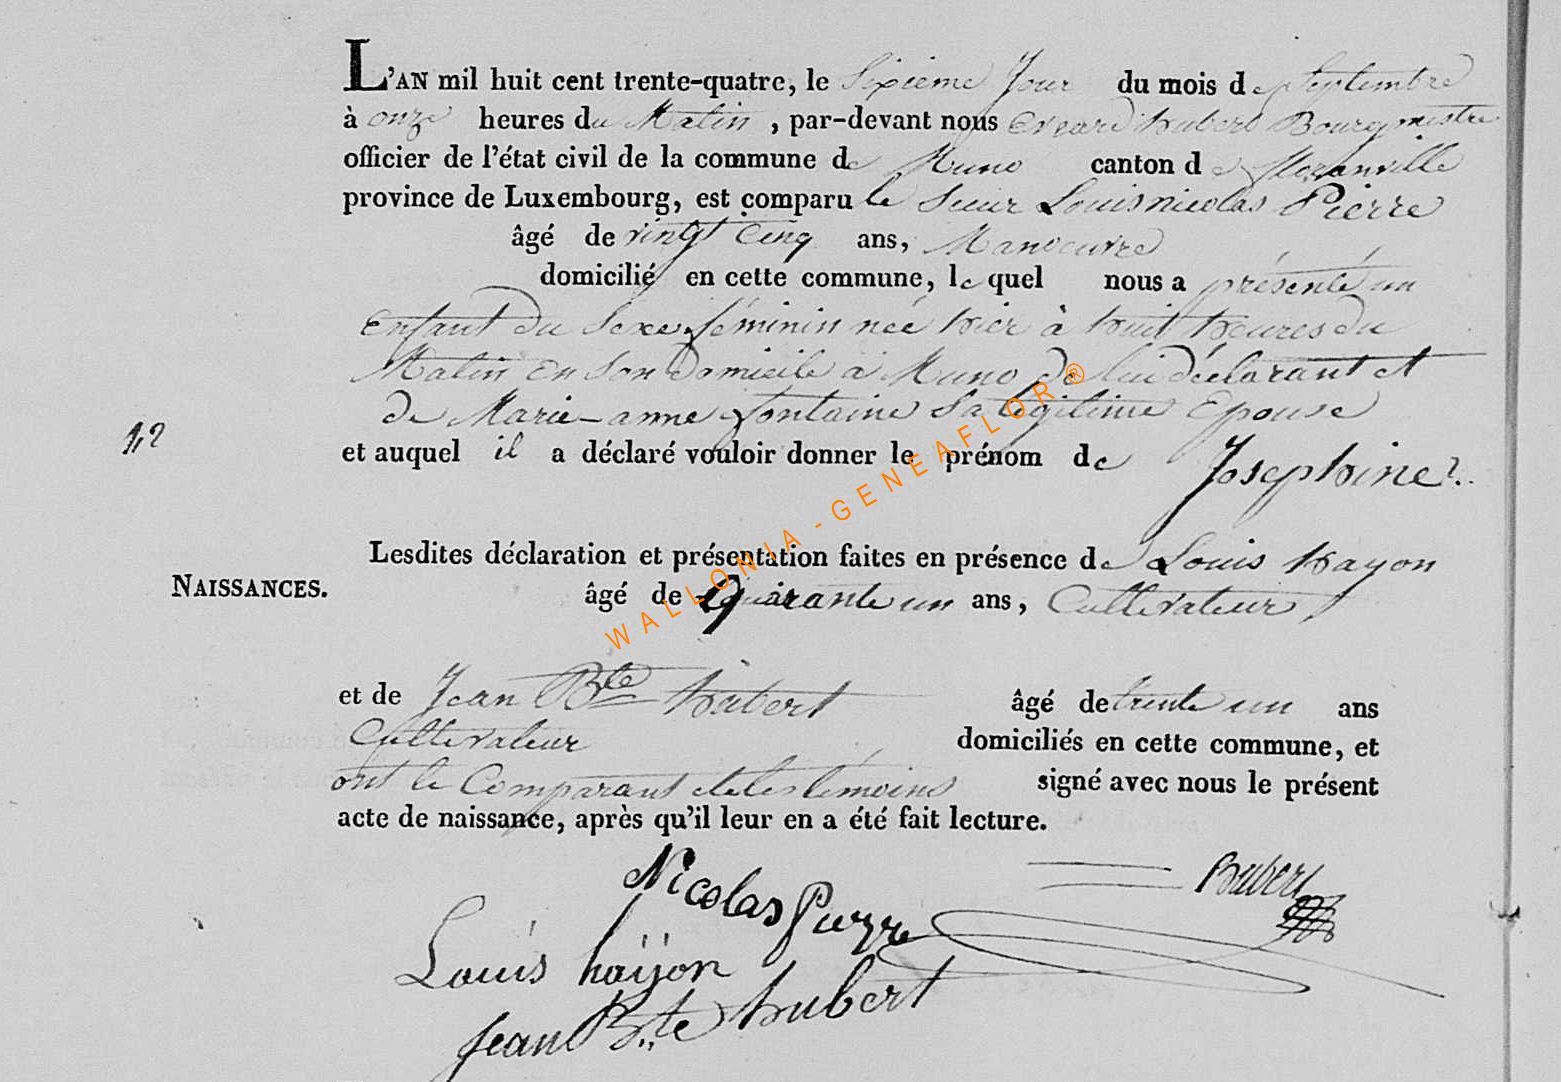 L'AN mil huit cent trente-quatre, le Sixieme Jour du mois de Septembre
à onze heures du Matin, par-devant nous Evrard hubert Bourgmestre
officier de l'état civil de la commune de Muno canton de
province de Luxembourg, est comparu le Sieur Louis nicolas Pierre
âgé de vingt Cinq ans, Manoeuvre
domicilié en cette commune, lequel nous a présenté un
Enfant du Sexe féminin née hier à huit heures du
Matin en son domicile à Muno de lui déclarant et
de Marie-anne fontaine Sa légitime Epouse
12
et auquel il a déclaré vouloir donner le prénom de Josephine.
Lesdites déclaration et présentation faites en présence de Louis hayon
NAISSANCES.
âgé de Quarante un ans, Cultivateur
et de Jean Bte hubert âgé de trente un ans
Cultivateur domiciliés en cette commune, et
ont le Comparant et les témoins signé avec nous le présent
acte de naissance, après qu'il leur en a été fait lecture.
Nicolas Pierre
hubert
Louis haÿon
Jean Bte hubert
WALLONIA - GENEAFLOR ®